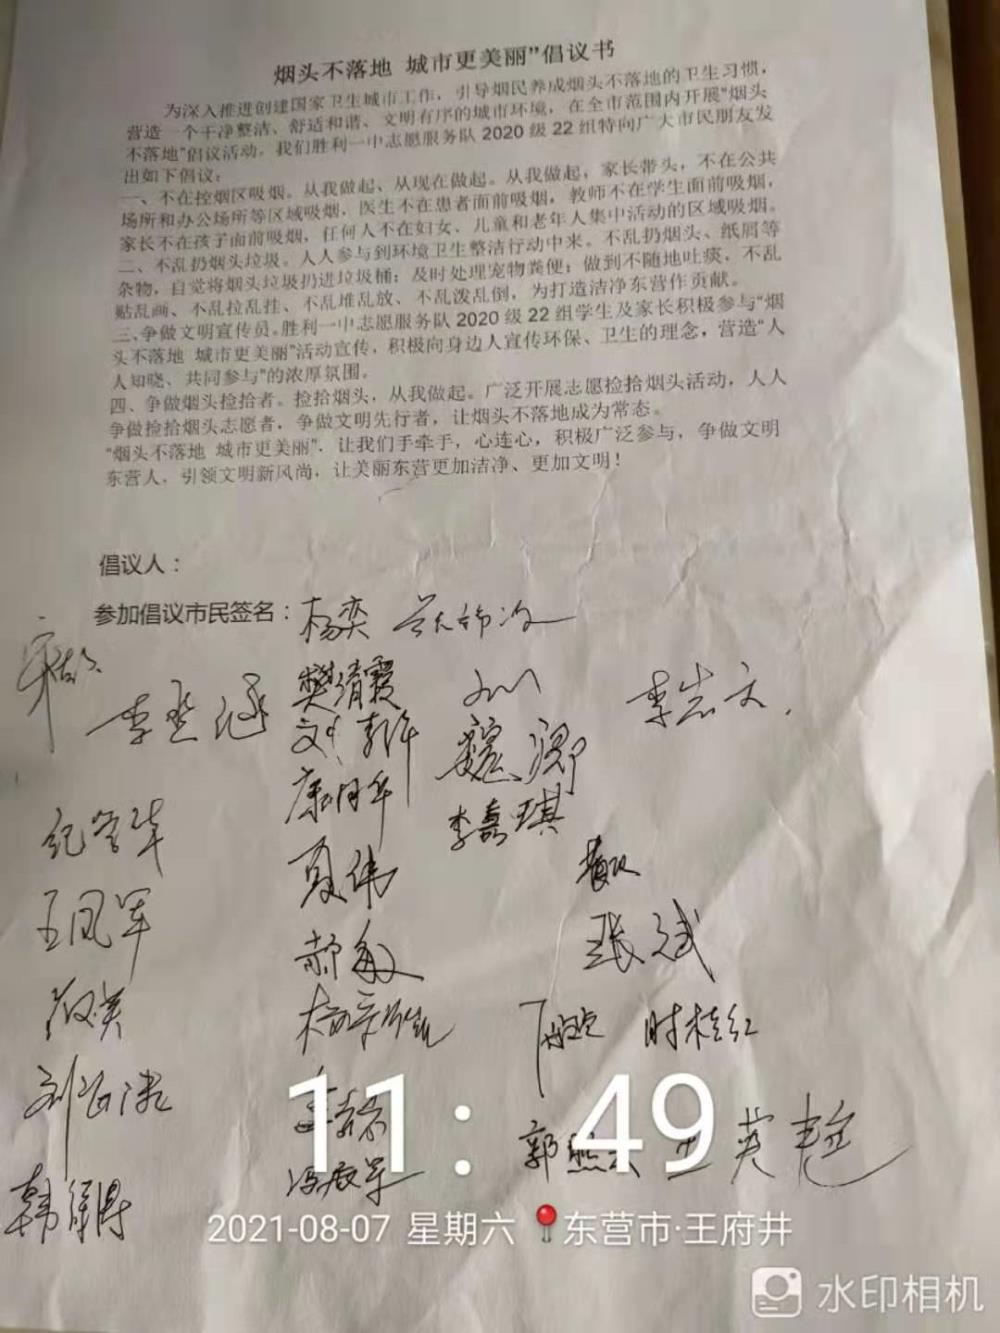 烟头不落地 城市更美丽”倡议书
为深入推进创建国家卫生城市工作，引导烟民养成烟头不落地的卫生习惯，
营造一个干净整洁、舒适和谐、文明有序的城市环境，在全市范围内开展“烟头
不落地”倡议活动。我们胜利一中志愿服务队 2020 级 22 组特向广大市民朋友发
出如下倡议：
一、不在控烟区吸烟。从我做起、从现在做起。从我做起，家长带头，不在公共
场所和办公场所等区域吸烟，医生不在患者面前吸烟，教师不在学生面前吸烟，
家长不在孩子面前吸烟，任何人不在妇女、儿童和老年人集中活动的区域吸烟。
二、不乱扔烟头垃圾。人人参与到环境卫生整洁行动中来。不乱扔烟头、纸屑等
杂物，自觉将烟头垃圾扔进垃圾桶；及时处理宠物粪便；做到不随地吐痰，不乱
贴乱画、不乱拉乱挂、不乱堆乱放、不乱泼乱倒，为打造洁净东营作贡献。
三、争做文明宣传员。胜利一中志愿服务队 2020 级 22 组学生及家长积极参与“烟
头不落地 城市更美丽”活动宣传，积极向身边人宣传环保、卫生的理念，营造“人
人知晓、共同参与”的浓厚氛围。
四、争做烟头捡拾者。捡拾烟头，从我做起。广泛开展志愿捡拾烟头活动，人人
争做捡拾烟头志愿者，争做文明先行者，让烟头不落地成为常态。
“烟头不落地 城市更美丽”，让我们手牵手，心连心，积极广泛参与，争做文明
东营人，引领文明新风尚，让美丽东营更加洁净、更加文明！
倡议人：
参加倡议市民签名：杨奕
樊清霞
李志文
李嘉琪
夏伟
王凤军
郝敏
张斌
时桂红
11：49
2021-08-07 星期六 东营市·王府井
水印相机